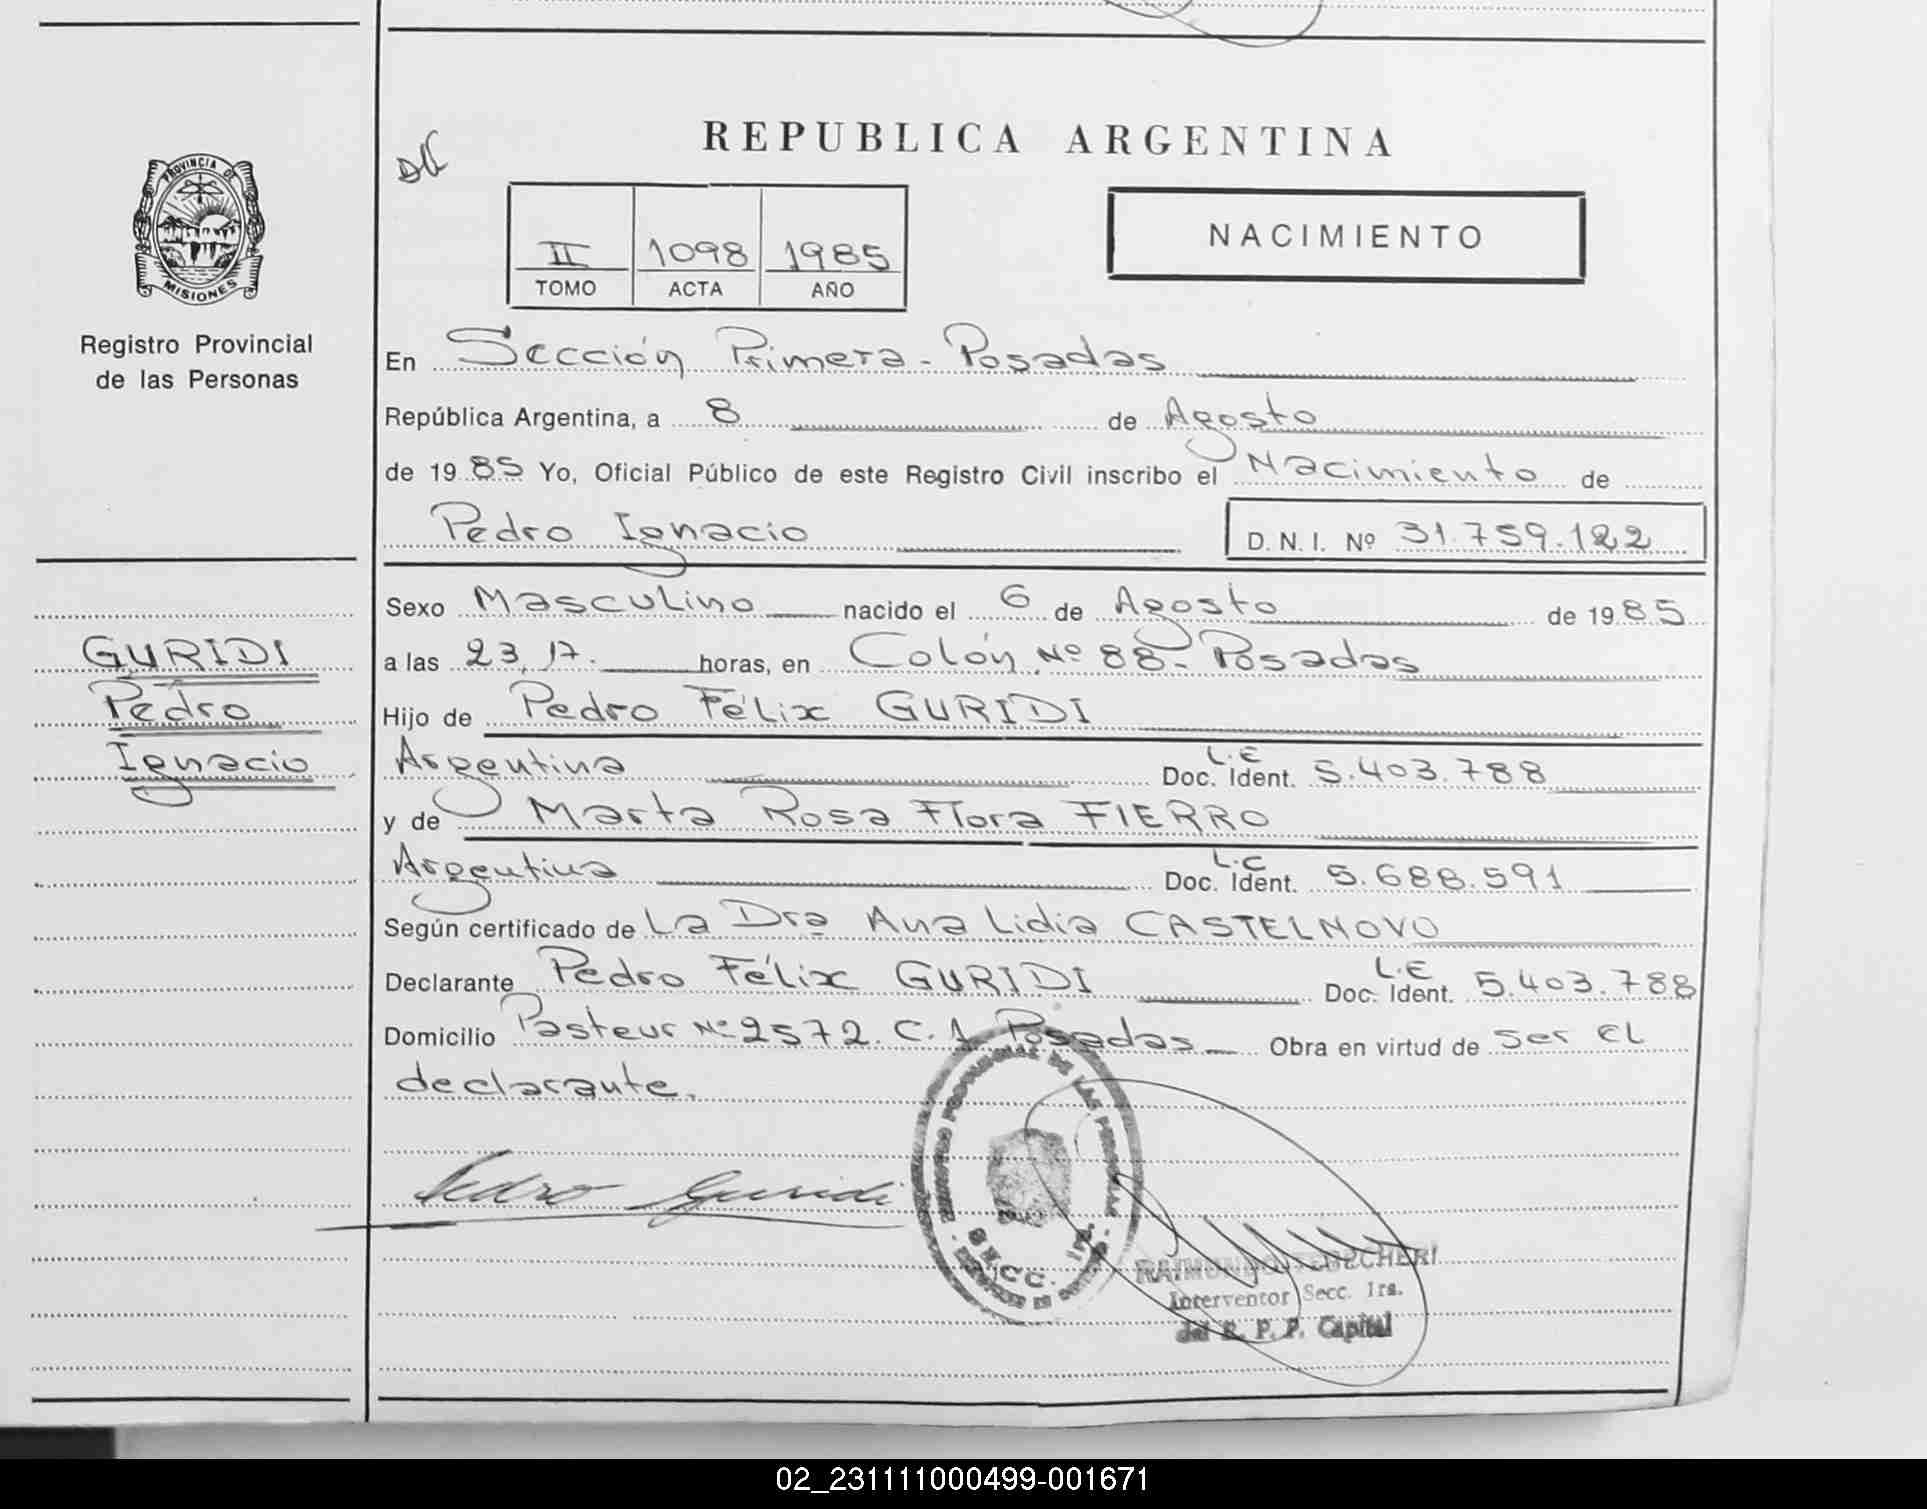 REPUBLICA ARGENTINA
PROVINCIA DE
MISIONES
Registro Provincial
de las Personas
II 1098 1985
TOMO ACTA AÑO
NACIMIENTO
En Sección Primera - Posadas
República Argentina, a 8 de Agosto
de 1985 Yo, Oficial Público de este Registro Civil inscribo el Nacimiento de
Pedro Ignacio D. N. I. Nº 31.759.122
Sexo Masculino nacido el 6 de Agosto de 1985
GURIDI
Pedro
Ignacio
a las 23,17. horas, en Colón Nº 88 - Posadas
Hijo de Pedro Félix GURIDI
Argentina Doc. Ident. L.E 5.403.788
y de Marta Rosa Flora FIERRO
Argentina Doc. Ident. L.C 5.688.591
Según certificado de La Dra Ana Lidia CASTELNOVO
Declarante Pedro Félix GURIDI Doc. Ident. L.E 5.403.788
Domicilio Pasteur Nº 2572. C. 1 Posadas Obra en virtud de ser el
declarante.
Pedro Guridi
PROVINCIAL DE LAS PERSONAS
1ra.
RAIMUNDO
Interventor Secc. 1ra.
del R. P. P. Capital
02_231111000499-001671